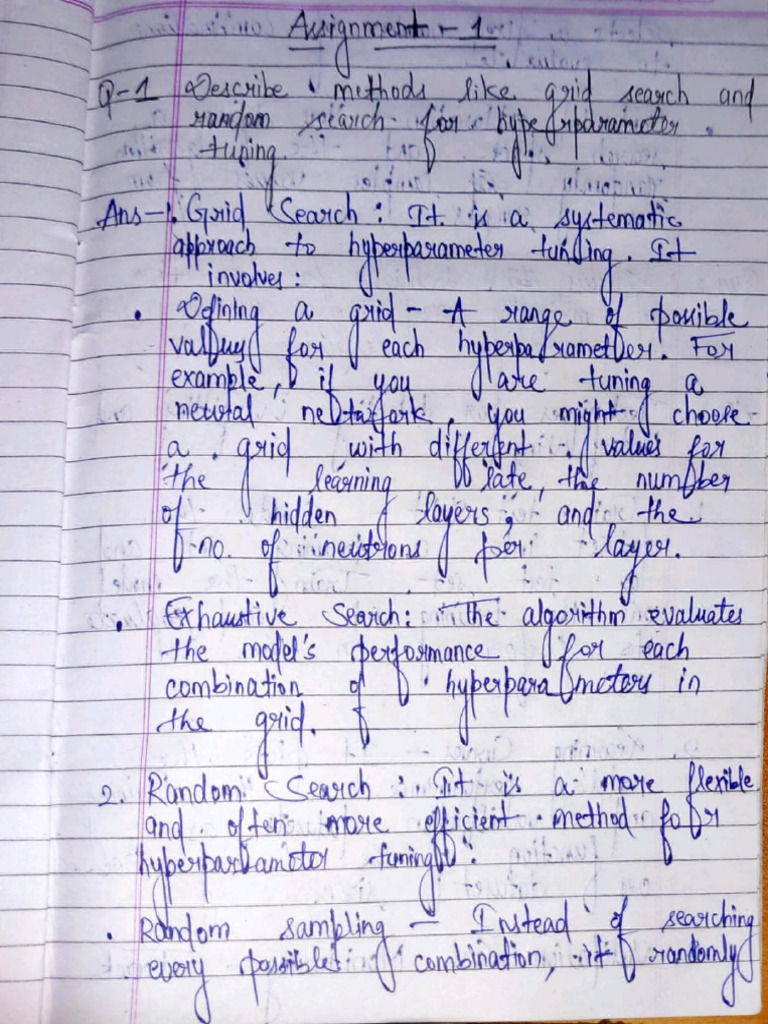 Assignment - 1
Q-1 Describe methods like grid search and
random search for hyperparameter
tuning.
Ans-1. Grid Search : It is a systematic
approach to hyperparameter tunding. It
involves :
• Defining a grid - A range of possible
values for each hyperparameter. For
example, if you are tuning a
neural network, you might choose
a grid with different values for
the learning late, the number
of hidden layers, and the
no. of neutrons per layer.
• Exhaustive Search : The algorithm evaluates
the model's performance for each
combination of hyperparameters in
the grid.
2. Random Search : It is a more flexible
and often more efficient method for
hyperparameter tuning :
• Random sampling - Instead of searching
every possible combination, it randomly